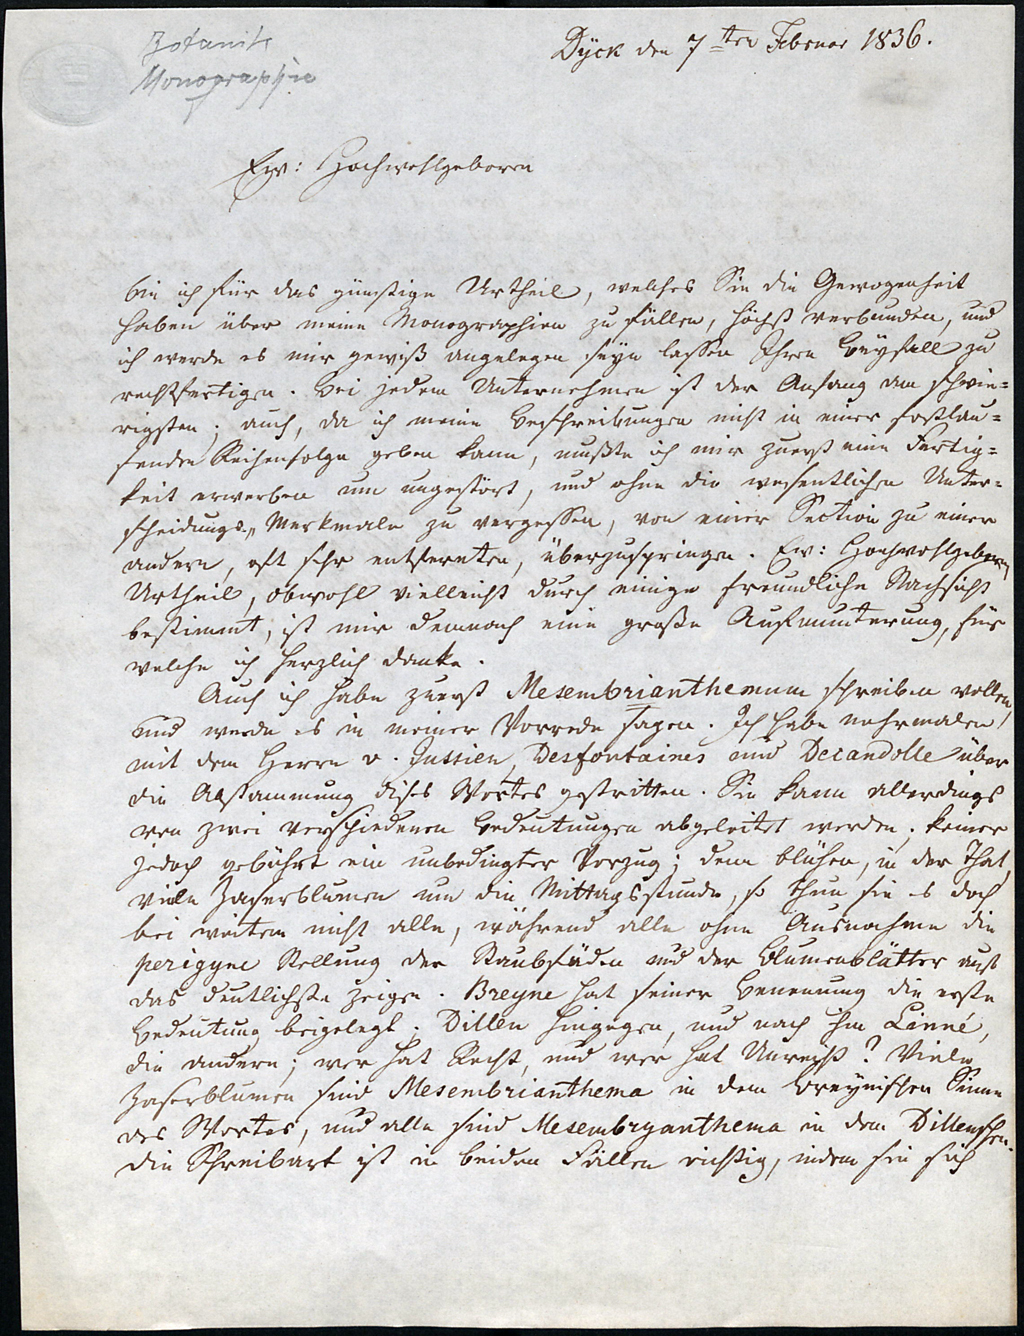 Botanik
Monographie
Dÿck den 7ten Februar 1836.
Ew: Hochwohlgeboren
bin ich für das günstige Urtheil, welches Sie die Gewogenheit
haben über meine Monographien zu fällen, höchst verbunden, und
ich werde es mir gewiß angelegen seÿn lassen Ihren Beÿfall zu
rechtfertigen. Bei jedem Unternehmen ist der Anfang am schwie=
rigsten; auch, da ich meine Beschreibungen nicht in einer fortlau=
fenden Reihenfolge geben kann, mußte ich mir zuerst eine Fertig=
keit erwerben um ungestört, und ohne die wesentlichen Unter=
scheidungs„Merkmale zu vergessen, von einer Section zu einer
andern, oft sehr entfernten, überzuspringen. Ew: Hochwohlgeboren
Urtheil, obwohl vielleicht durch einige freundliche Nachsicht
bestimmt, ist mir demnach eine große Aufmunterung, für
welche ich herzlich danke.
Auch ich habe zuerst Mesembrianthemum schreiben wollen,
und werde es in meiner Vorrede sagen. Ich habe mehrmalen
mit dem Herrn v. Jussieu, Desfontaines und Decandolle über
die Abstammung dises Wortes gestritten. Sie kann allerdings
von zwei verschiedenen Bedeutungen abgeleitet werden; keiner
jedoch gebührt ein unbedingter Vorzug; denn blühen, in der That,
viele Zaserblumen um die Mittagsstunde, so thun sie es doch
bei weitem nicht alle, während alle ohne Ausnahme die
perigyne Stellung der Staubfäden und der Blumenblätter auf
das deutlichste zeigen. Breyne hat seiner Benennung die erste
Bedeutung beigelegt; Dillen hingegen, und nach ihm Linné,
die andere; wer hat Recht, und wer hat Unrecht? Viele
Zaserblumen sind Mesembrianthema in dem Breÿnischen Sinne
des Wortes, und alle sind Mesembryanthema in dem Dillenschen.
Die Schreibart ist in beiden Fällen richtig, indem sie sich